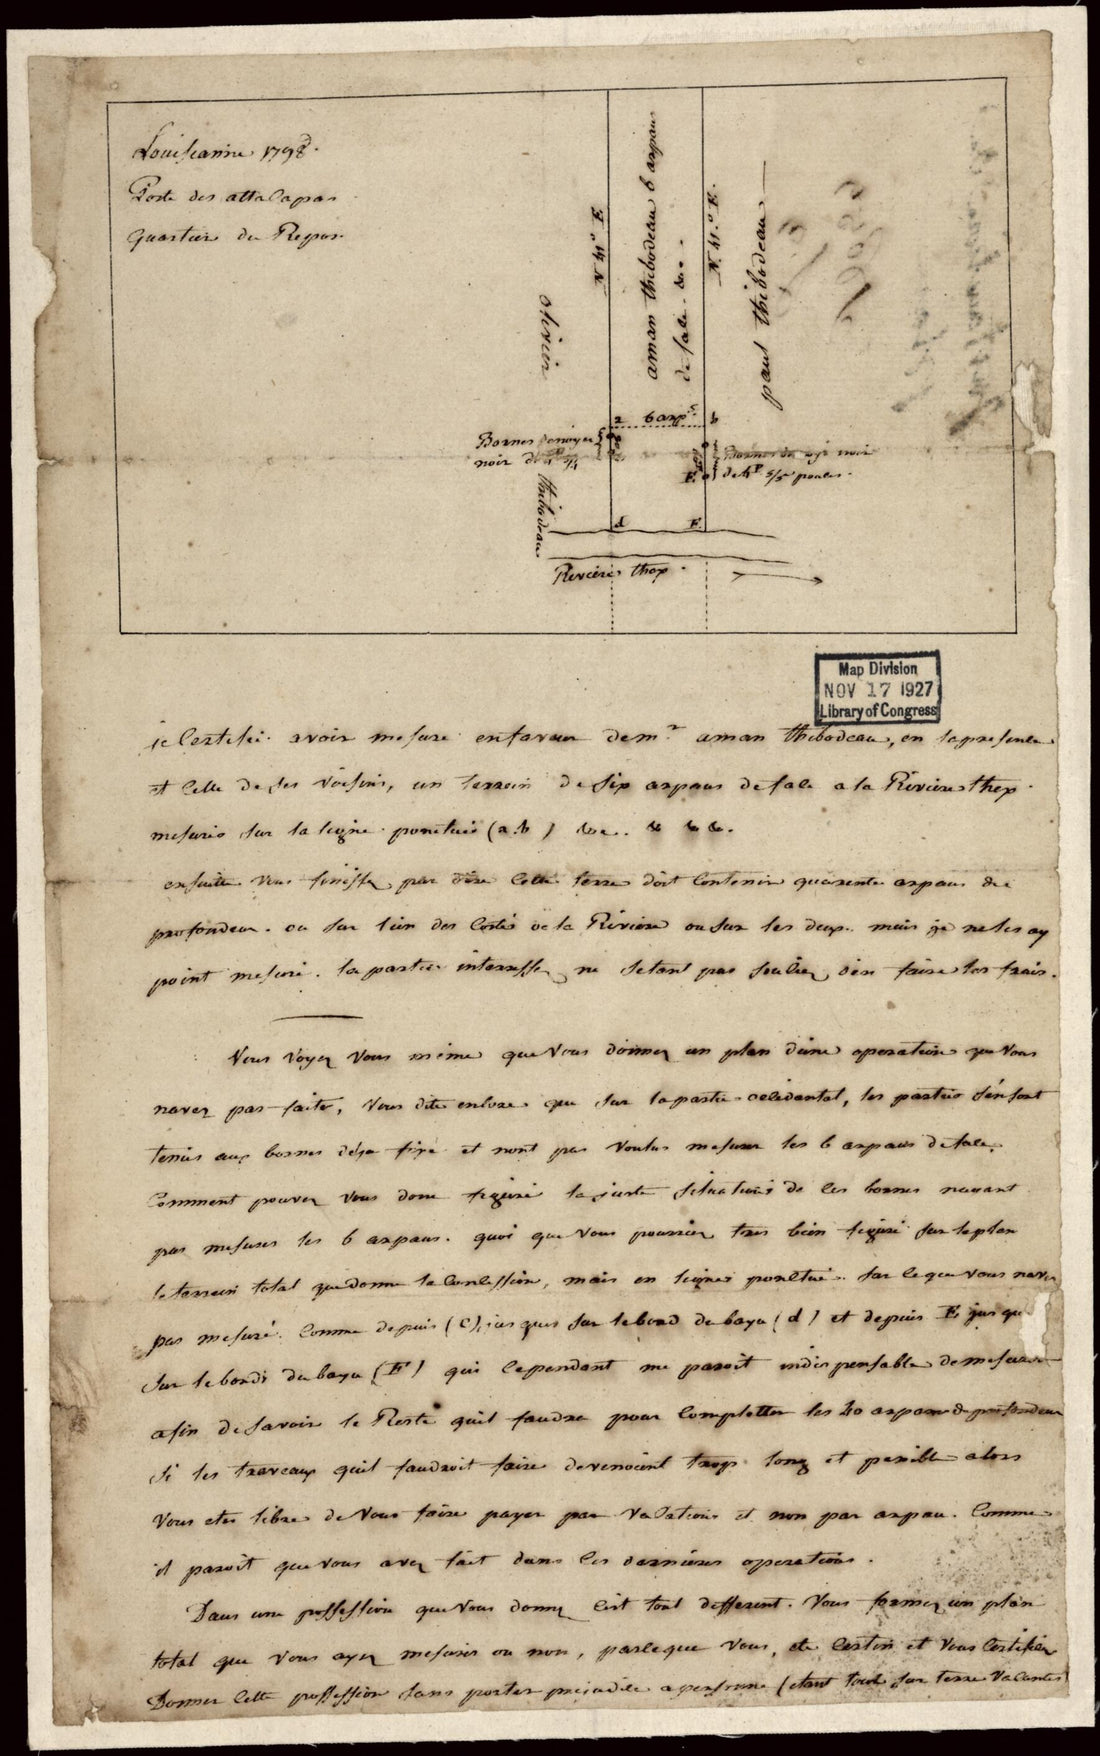 Louiseanne 1798
Poste des attacapas
quartier du Repos
N 41° E
aman thibodeau 6 arpans
de face &c.
N. 41.° E.
paul thibodeau
olivier
thibodeau
a 6 arps. b
Bornes de noyer
noir de
Bornes de
noir
de 4P 5/5 pouces.
E.
d F.
Riviere thex.
Map Division
NOV 17 1927
Library of Congress
je Certifie avoir mesuré enfaveur de mr aman thibodeau, en sa presence
et Celle de ses Voisins, un terrein de six arpans de face a la Riviere thex.
mesurés sur la ligne ponctuée (a.b) &c. & & &.
ensuitte vous finissez par dire Cette terre doit Contenir quarente arpans de
profondeur. ou sur l'un des Costés de la Riviere ou sur les deux. mais je ne les ay
point mesuré. la partie interressée ne setant pas soucier d'en faire les frais.
Vous Voyez Vous même que Vous donnez un plan d'une operation que Vous
navez pas faite, Vous dite encore que sur la partie occidental, les parties s'en sont
tenus aux bornes déja fixé et nont pas Voulus mesurer les 6 arpans de face.
Comment pouvez Vous donc figuré la juste situations de ces bornes nayant
pas mesurés les 6 arpans. quoi que Vous pourriez tres bien figuré sur le plan
le terrein total que donne la Concession, mais en lignes ponctué sur ce que vous navez
pas mesuré. Comme depuis (C) jusques sur le bord du bayu (d) et depuis E jus qu
sur le bord du bayu (F) qui Cependant me paroit indispensable de mesurer
afin de savoir le Reste quil faudra pour Completter les 40 arpans de profondeur
si les traveaux quil faudroit faire devenoient trop long et penible alors
Vous ete libre de Vous faire payer par Vacations et non par arpan. Comme
il paroit que vous avez fait dans les dernieres operations.
Dans une possession que Vous donnez C'est tout different. Vous formez un plan
total que Vous ayez mesurés ou non, parceque Vous, ete Certin et Vous Certifiez
Donner Cette possession sans porter prejudice a personne (etant tout sur terre Vacantes)